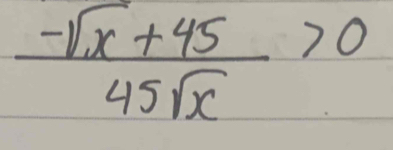 (-√x + 45) / (45√x) > 0